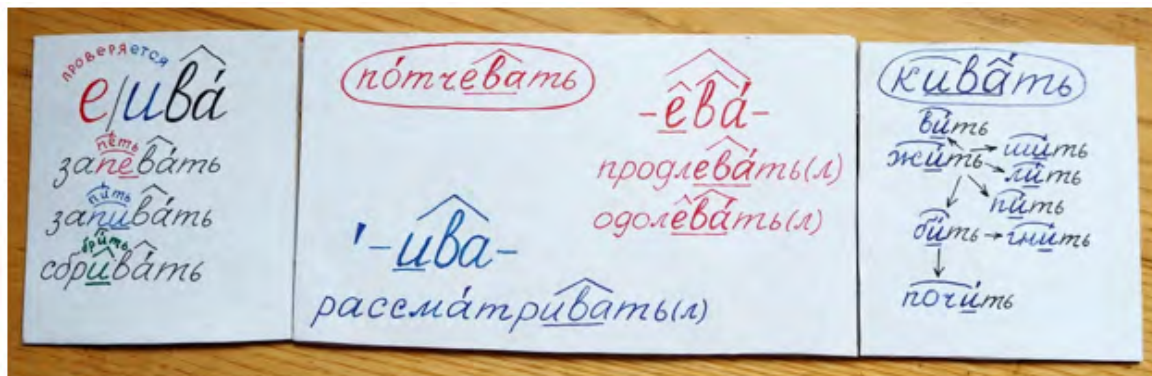 проверяется
е/ива́
пе́ть
запева́ть
пи́ть
запива́ть
бри́ть
сбрива́ть
по́тчевать
-ева́-
продлева́ть(л)
одолева́ть(л)
'-ива-
рассма́тривать(л)
кива́ть
ви́ть
жи́ть
ши́ть
ли́ть
пи́ть
би́ть
гни́ть
почи́ть